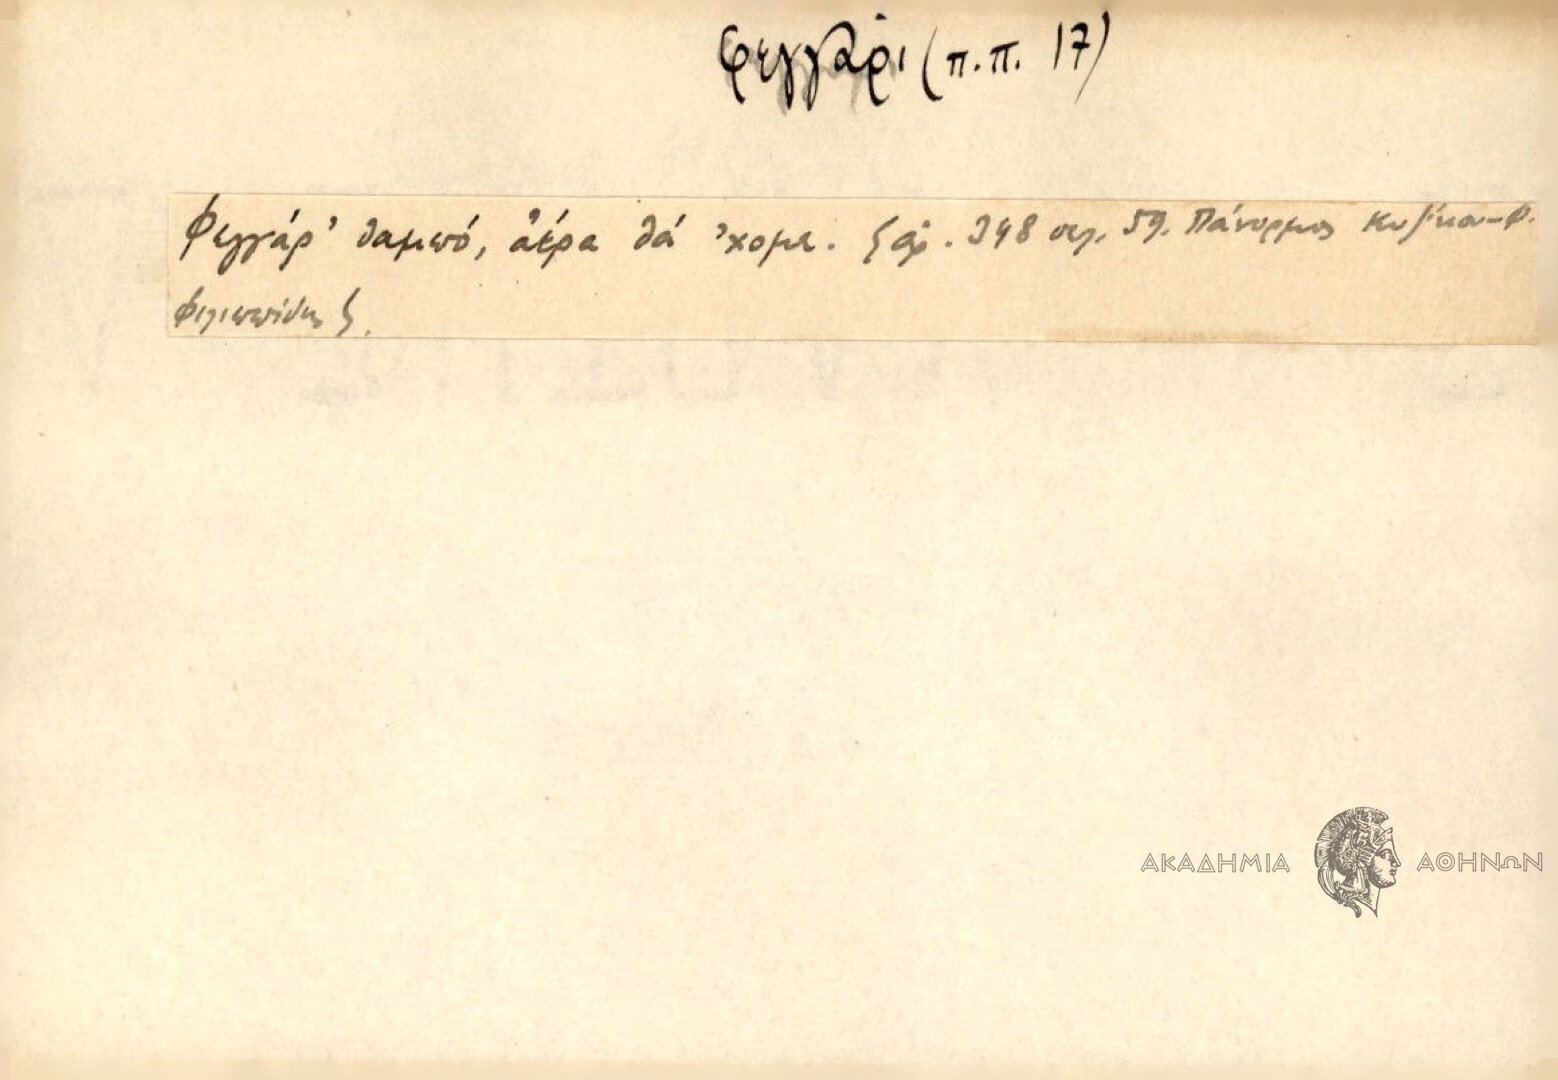 φεγγάρι (π.π. 17)
Φεγγάρ' θαμπό, ἀέρα θά 'χομε. ἀρ. 348 σελ. 59. Πάνορμος Κυζίκου-Φ.
Φιλιππίδης
ΑΚΑΔΗΜΙΑ ΑΘΗΝΩΝ